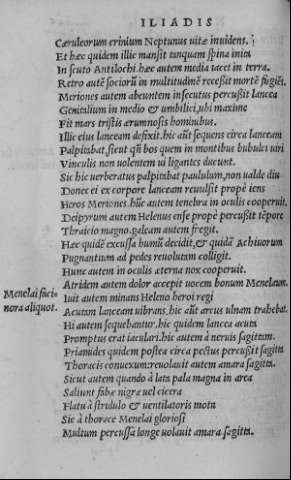 ILIADIS
Cæruleorum crinium Neptunus uitæ inuidens.
Et hæc quidem illic mansit tanquam spina imix
In scuto Antilochi.hæc autem media iacet in terra.
Retro autē sociorū in multitudinē recessit mortē fugiēs.
Meriones autem abeuntem insecutus percussit lancea
Genitalium in medio & umbilici,ubi maxime
Fit mars tristis ærumnosis hominibus.
Illic eius lanceam defixit.hic aūt sequens circa lanceam
Palpitabat,sicut qn̄ bos quem in montibus bubulci uiri
Vinculis non uolentem ui ligantes ducunt.
Sic hic uerberatus palpitabat paululum,non ualde diu
Donec ei ex corpore lanceam reuulsit propè iens
Heros Meriones.hūc autem tenebræ in oculis cooperuit.
Deipyrum autem Helenus ense propè percussit tēpore
Thraicio magno.galeam autem fregit.
Hæc quidē excussa humū decidit,& quidā Achiuorum
Pugnantium ad pedes reuolutam colligit.
Hunc autem in oculis æterna nox cooperuit.
Atridem autem dolor accepit uocem bonum Menelaum.
Menelai faci-
nora aliquot.
Iuit autem minans Heleno heroi regi
Acutam lanceam uibrans,hic aūt arcus ulnam trahebat.
Hi autem sequebantur,hic quidem lancea acuta
Promptus erat iaculari.hic autem à neruis sagittam.
Priamides quidem postea circa pectus percussit sagitta
Thoracis conuexum:reuolauit autem amara sagitta.
Sicut autem quando à lata pala magna in area
Saliunt fabæ nigræ uel cicera
Flatu à stridulo & uentilatoris motu
Sic à thorace Menelai gloriosi
Multum percussa longe uolauit amara sagitta.